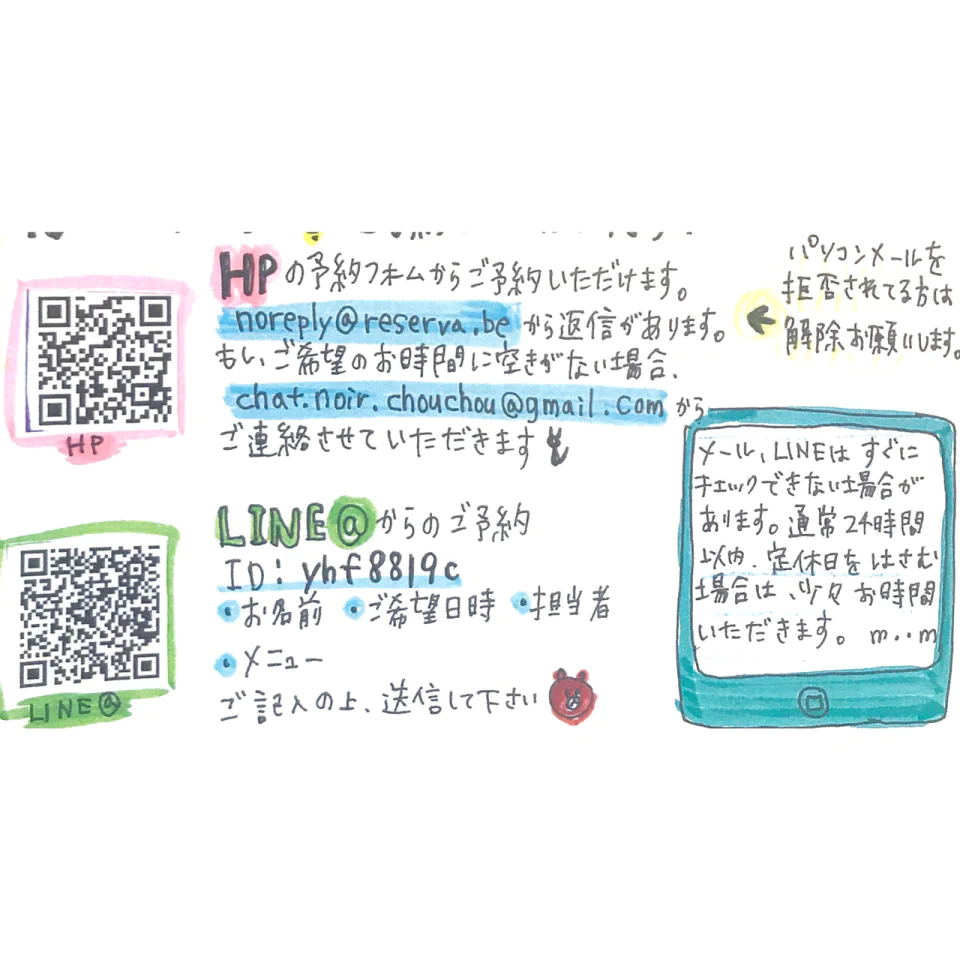 HPの予約フォームからご予約いただけます。
noreply@reserva.be から返信があります。
もし、ご希望のお時間に空きがない場合、
chat.noir.chouchou@gmail.com から
ご連絡させていただきます
パソコンメールを
拒否されてる方は
解除お願いします。
HP
LINE@からのご予約
ID: yhf8819c
・お名前 ・ご希望日時 ・担当者
・メニュー
ご記入の上、送信して下さい
LINE@
メール、LINEはすぐに
チェックできない場合が
あります。通常24時間
以内、定休日をはさむ
場合は、少々お時間
いただきます。m..m